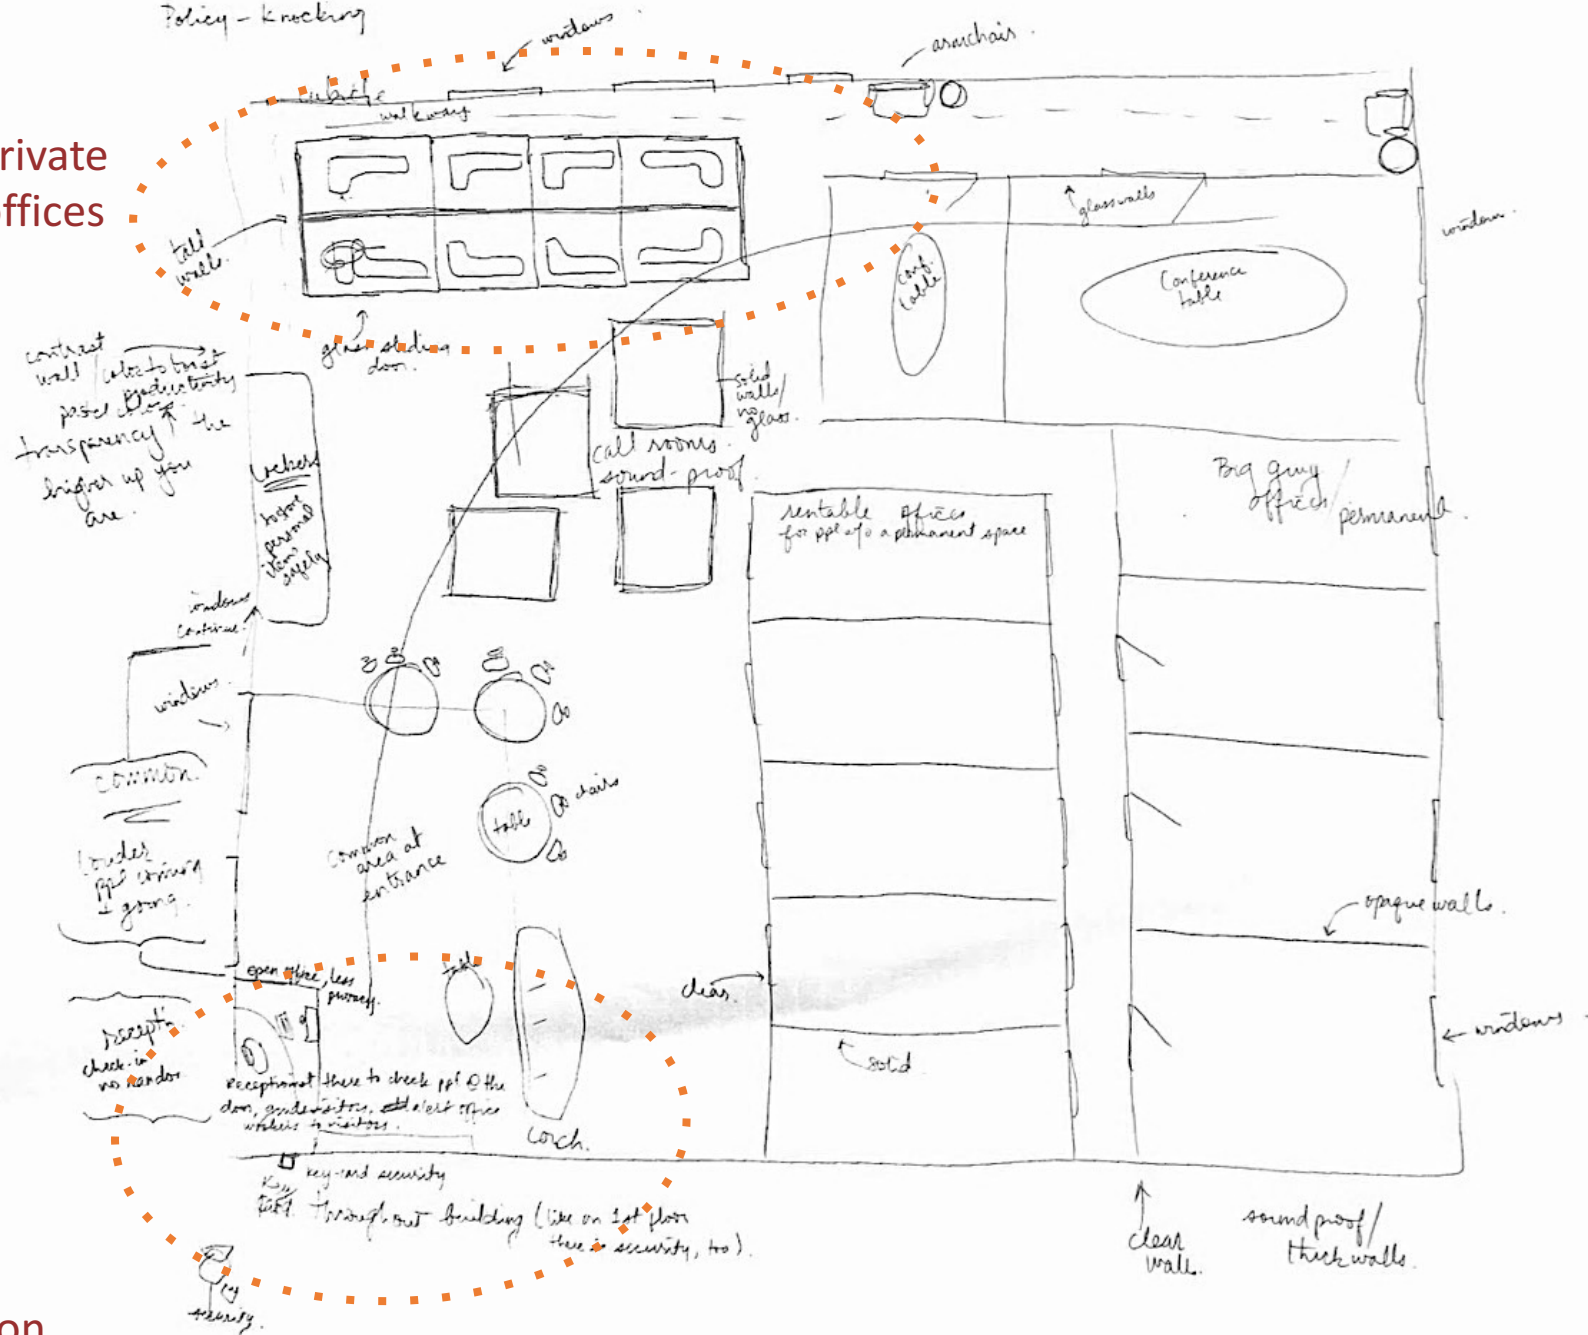 Policy - Knocking
windows
armchair.
cubicle
walkway
rivate
offices
tall
walls.
glass walls
window.
conf.
table
Conference
table
glass sliding
door.
contrast
wall / color to boost
productivity
pastel colors.
transparency ↑ the
higher up you
are.
solid
walls/
no
glass.
call rooms.
sound-proof.
Lockers
to store
personal
items
safely
rentable offices
for ppl w/o a permanent space
Big guy
offices/
permanent.
windows
continue.
windows.
common.
Louder
ppl coming
+ going.
table
chairs
common
area at
entrance
opaque walls.
open office, less
privacy.
table
clear.
solid
windows
recept.
check-in
no randos
Receptionist there to check ppl @ the
door, guide visitors, alert office
workers to visitors.
couch.
key-card security
throughout building (like on 1st floor
there is security, too).
clear
wall.
soundproof/
thick walls.
security.
on